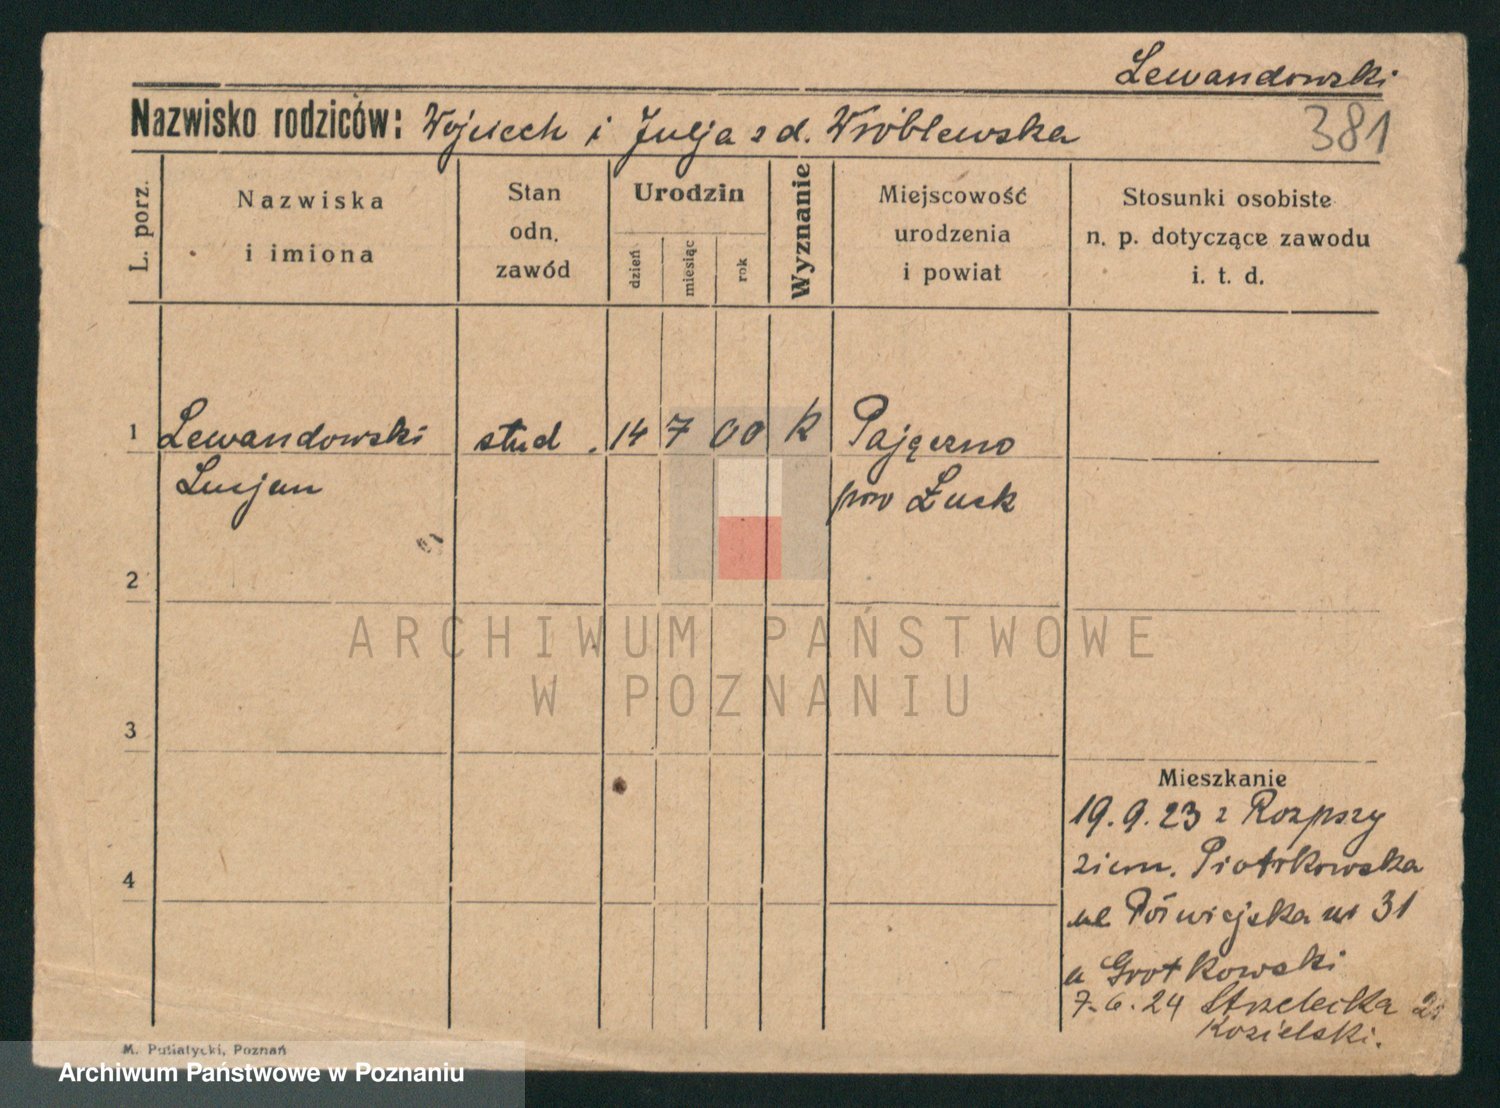 Lewandowski
Nazwisko rodziców: Wojciech i Julja z d. Wróblewska
381
L. porz.
Nazwiska
i imiona
Stan
odn.
zawód
Urodzin
dzień
miesiąc
rok
Wyznanie
Miejscowość
urodzenia
i powiat
Stosunki osobiste
n. p. dotyczące zawodu
i. t. d.
1 Lewandowski stud. 14 7 00 K Pajęczno
Lucjan pow Łuck
2
ARCHIWUM PAŃSTWOWE
W POZNANIU
3
Mieszkanie
19.9.23 z Rozpszy
ziem. Piotrkowska
4
ul Półwiejska nr 31
u Grotkowski
7.6.24 Strzelecka
Kozielski.
M. Putiatycki, Poznań
Archiwum Państwowe w Poznaniu